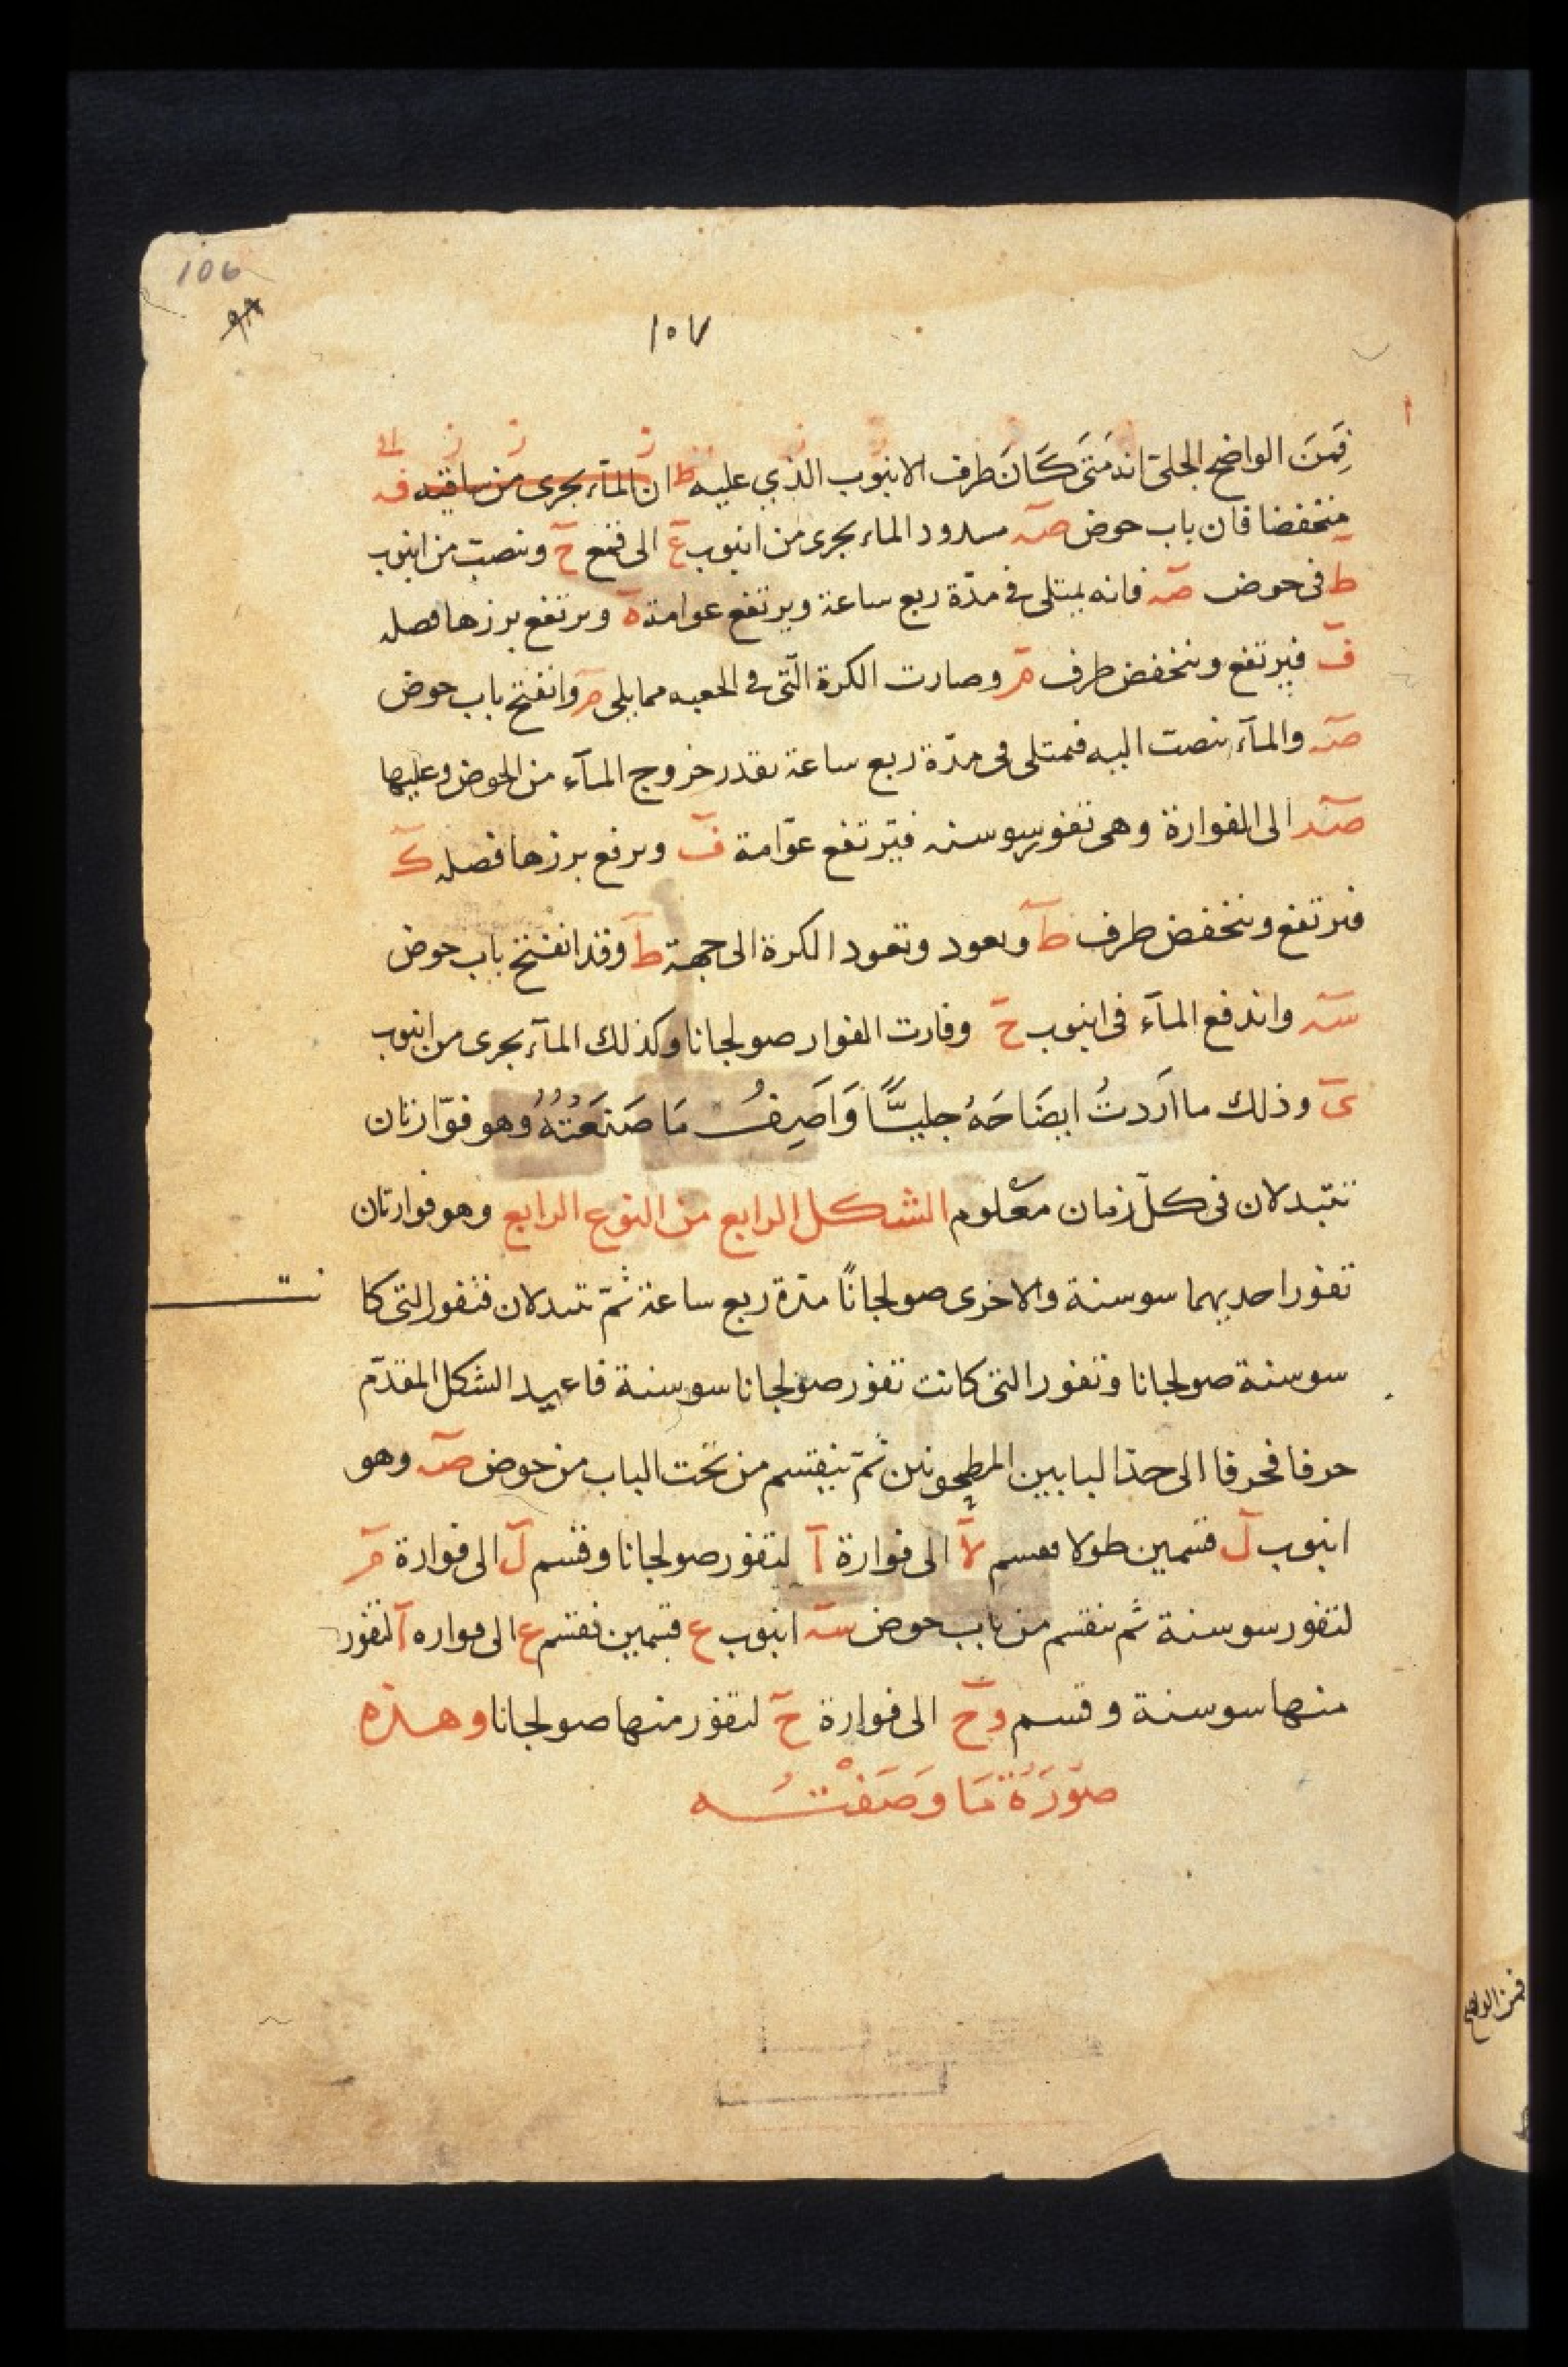 106
١٥٧
فَمِنَ الواضح الجلى انه مَتَى كَانَ طرف الانبوب الذي عليه ط ان المآء يجرى من ساقيه ف
منخفضا فان باب حوض صـ مسدود الماء يجرى من انبوب ع الى قنع ح وينصبّ من انبوب
ط فى حوض صـ فانه يمتلى فى مدّة ربع ساعة ويرتفع عوامة ه ويرتفع برزها فصله
ف فيرتفع وينخفض طرف م وصارت الكرة الّتى فى الجعبه مما يلى م وانفتح باب حوض
صـ والمآء ينصبّ اليه فيمتلى فى مدّة ربع ساعة بقدر خروج المآء من الحوض وعليها
صـ الى الفوارة وهى تفور سوسنه فيرتفع عوّامة ف ويرفع برزها فصله ك
فيرتفع وينخفض طرف ط ويعود وتعود الكرة الى جهة ط وقد انفتح باب حوض
سـ واندفع المآء فى انبوب ح وفارت الفوار صولجانا وكذلك المآء يجرى من انبوب
ى وذلك ما اَردتُ ايضَاحَهُ جليًّا وَاَصِفُ مَا صَنَعَتُهُ وهو فوّارتان
تتبدلان فى كلّ زمان معلوم الشكل الرابع من النوع الرابع وهو فوارتان
تفور احديهما سوسنة والاخرى صولجانًا مدّة ربع ساعة ثمّ تتبدلان فتفور التى كا
نت
سوسنة صولجانا وتفور التى كانت تفور صولجانا سوسنة فاعيد الشكل المقدّم
حرفا فحرفا الى حدّ البابين المطحونين ثمّ ينقسم من تحت الباب من حوض صـ وهو
انبوب ل قسمين طولا فقسم لا الى فوارة آ لتفور صولجانا وقسم ل الى فوارة م
لتفور سوسنة ثم ينقسم من باب حوض سـ انبوب ع قسمين فقسم ع الى فواره آ لتفور
منها سوسنة وقسم وح الى فوارة ح لتفور منها صولجانا وهذه
صُوْرَةُ مَا وَصَفْتُه
فمن الواضح